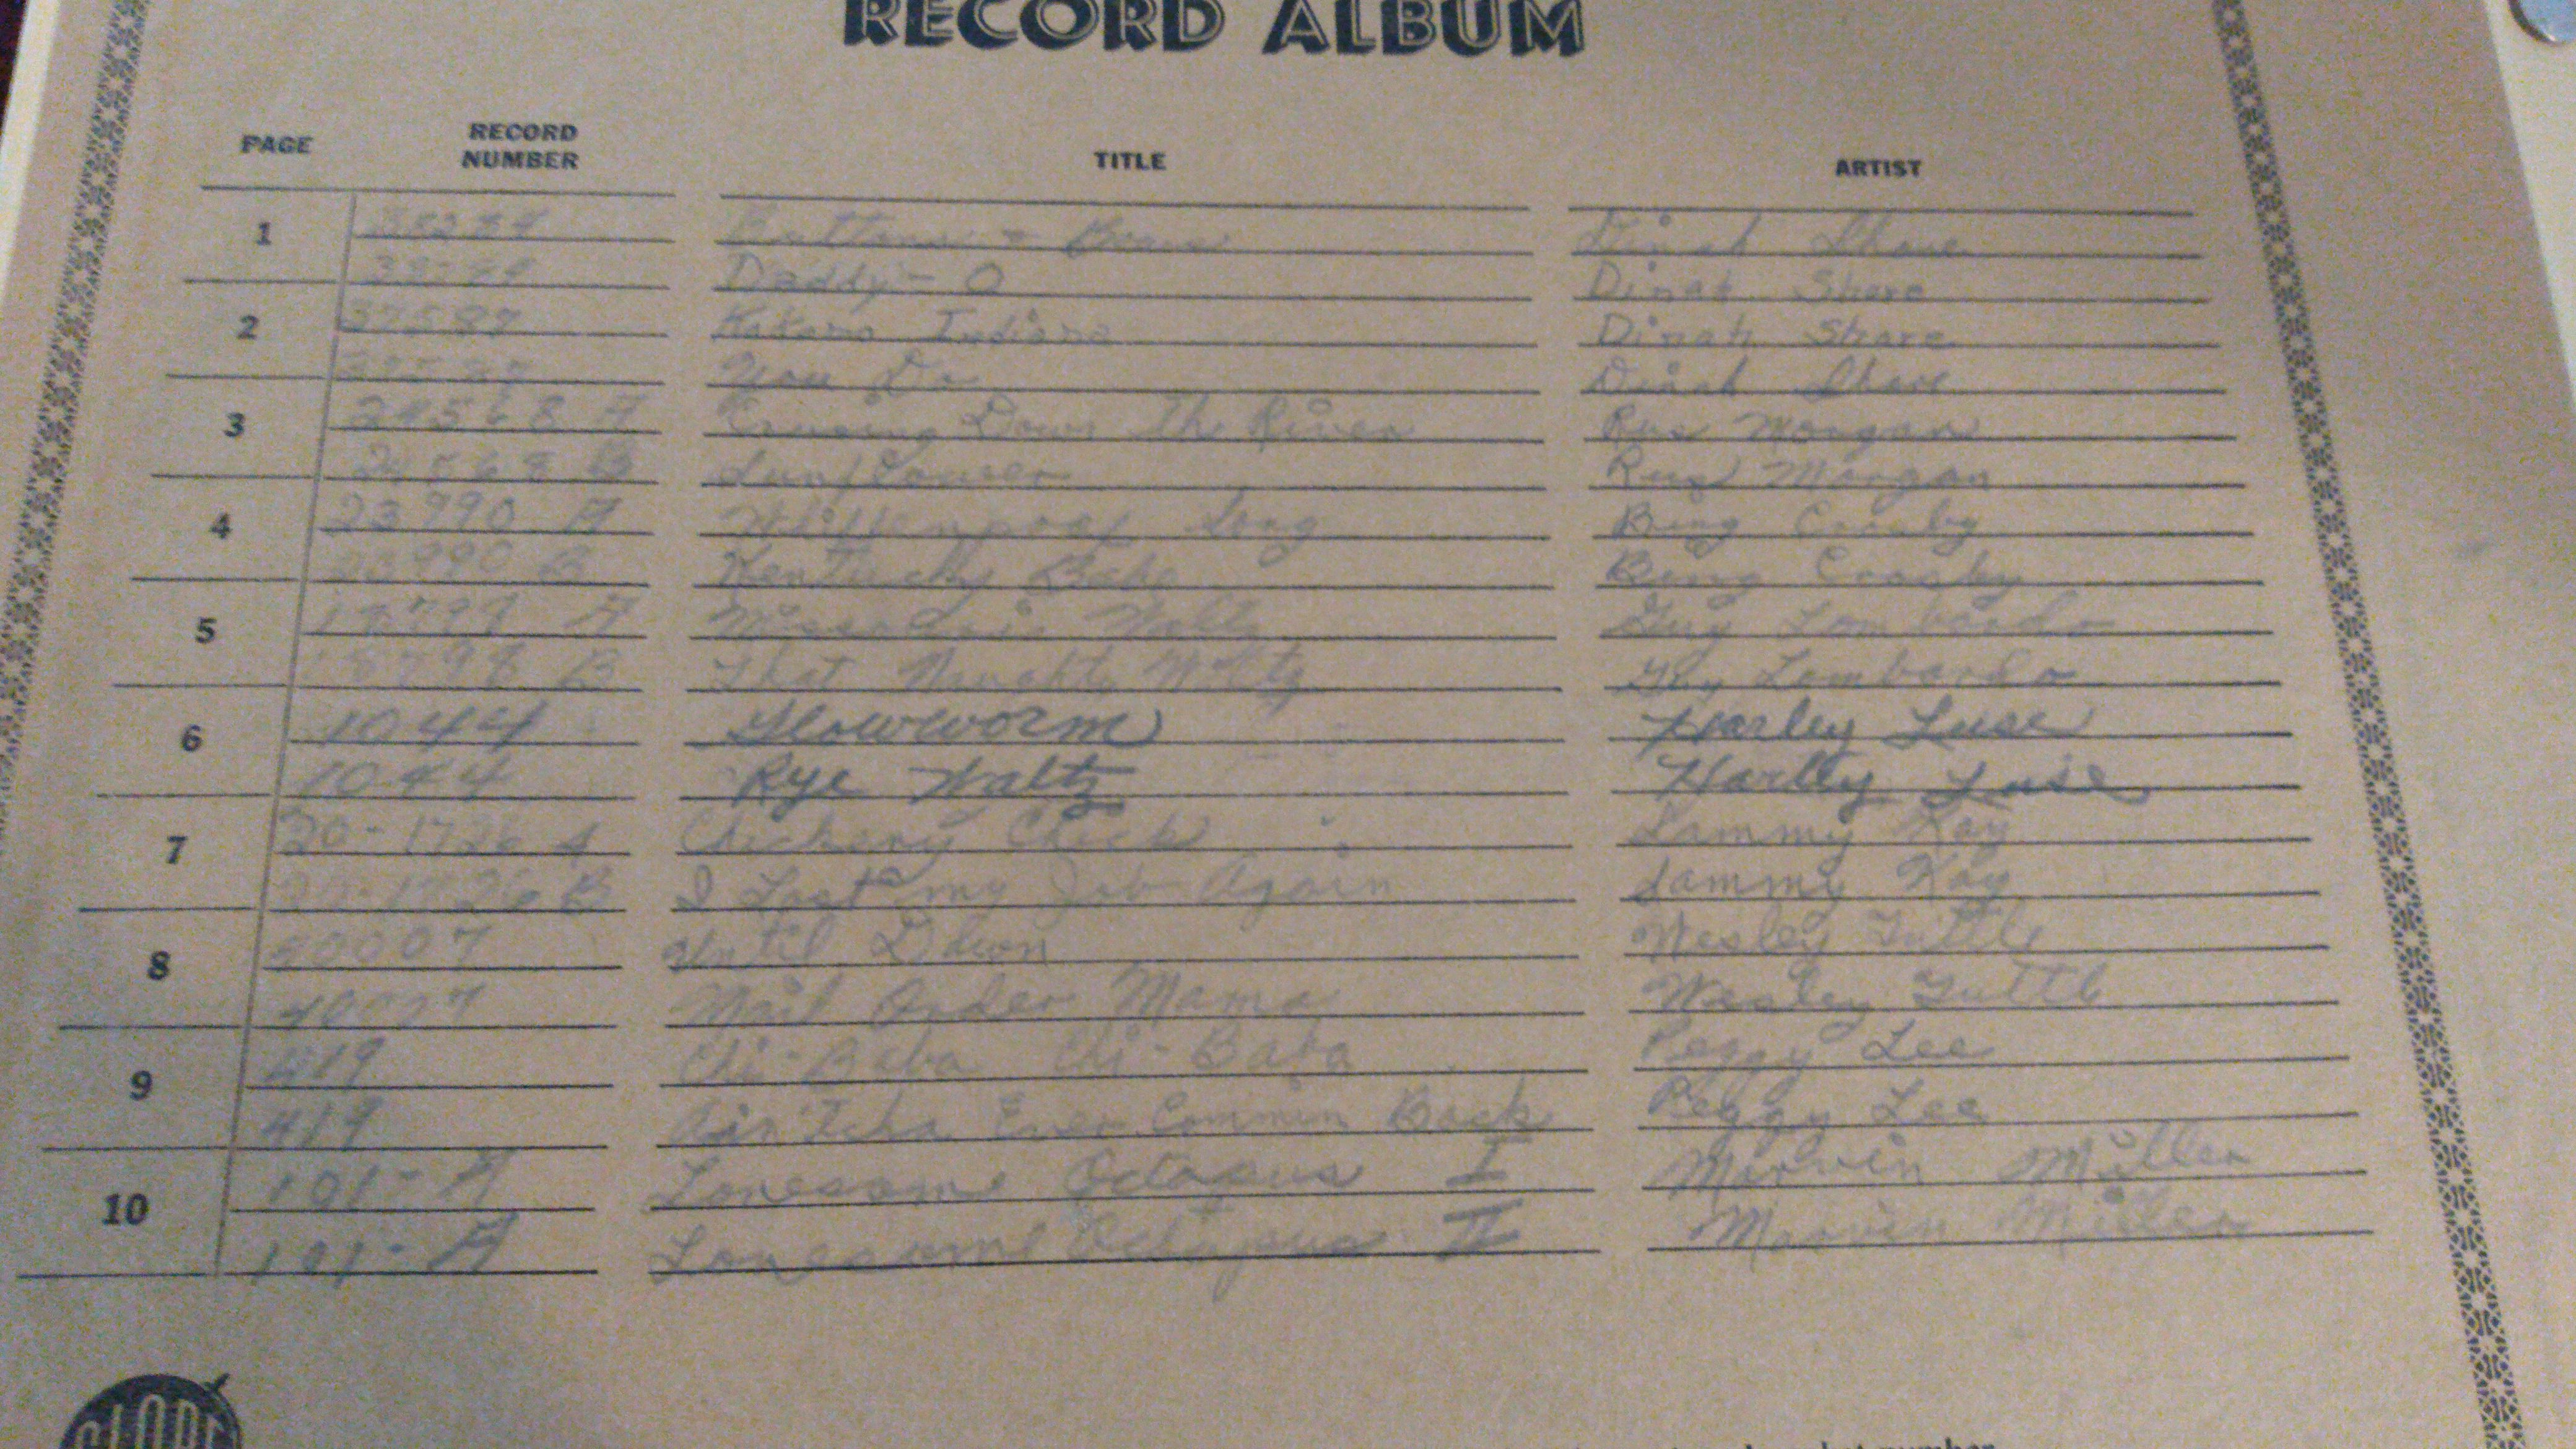 RECORD ALBUM
PAGE RECORD NUMBER TITLE ARTIST
1 Buttons - Bows Dinah Shore
Daddy - O Dinah Shore
2 Kokomo Indiana Dinah Shore
You Do Dinah Shore
3 24568 A Cruising Down The River Rus Morgan
24568 B Sunflower Rus Morgan
4 23990 A Whiffenpoof Song Bing Crosby
23990 B Kentucky Babe Bing Crosby
5 A Waltz Guy Lombardo
B That Naughty Waltz Guy Lombardo
6 1044 Glowworm Harley Luse
1044 Rye Waltz Harley Luse
7 20-1726 A Chickery Chick Sammy Kay
20-1726 B I Lost my Job Again Sammy Kay
8 40007 Until Dawn Wesley Tuttle
40007 Mail Order Mama Wesley Tuttle
9 419 Chi-Baba Chi-Baba Peggy Lee
419 Ain'tcha Ever Commin Back Peggy Lee
10 101-A Lonesome Octopus I Marvin Miller
101-A Lonesome Octopus II Marvin Miller
GLOBE
number